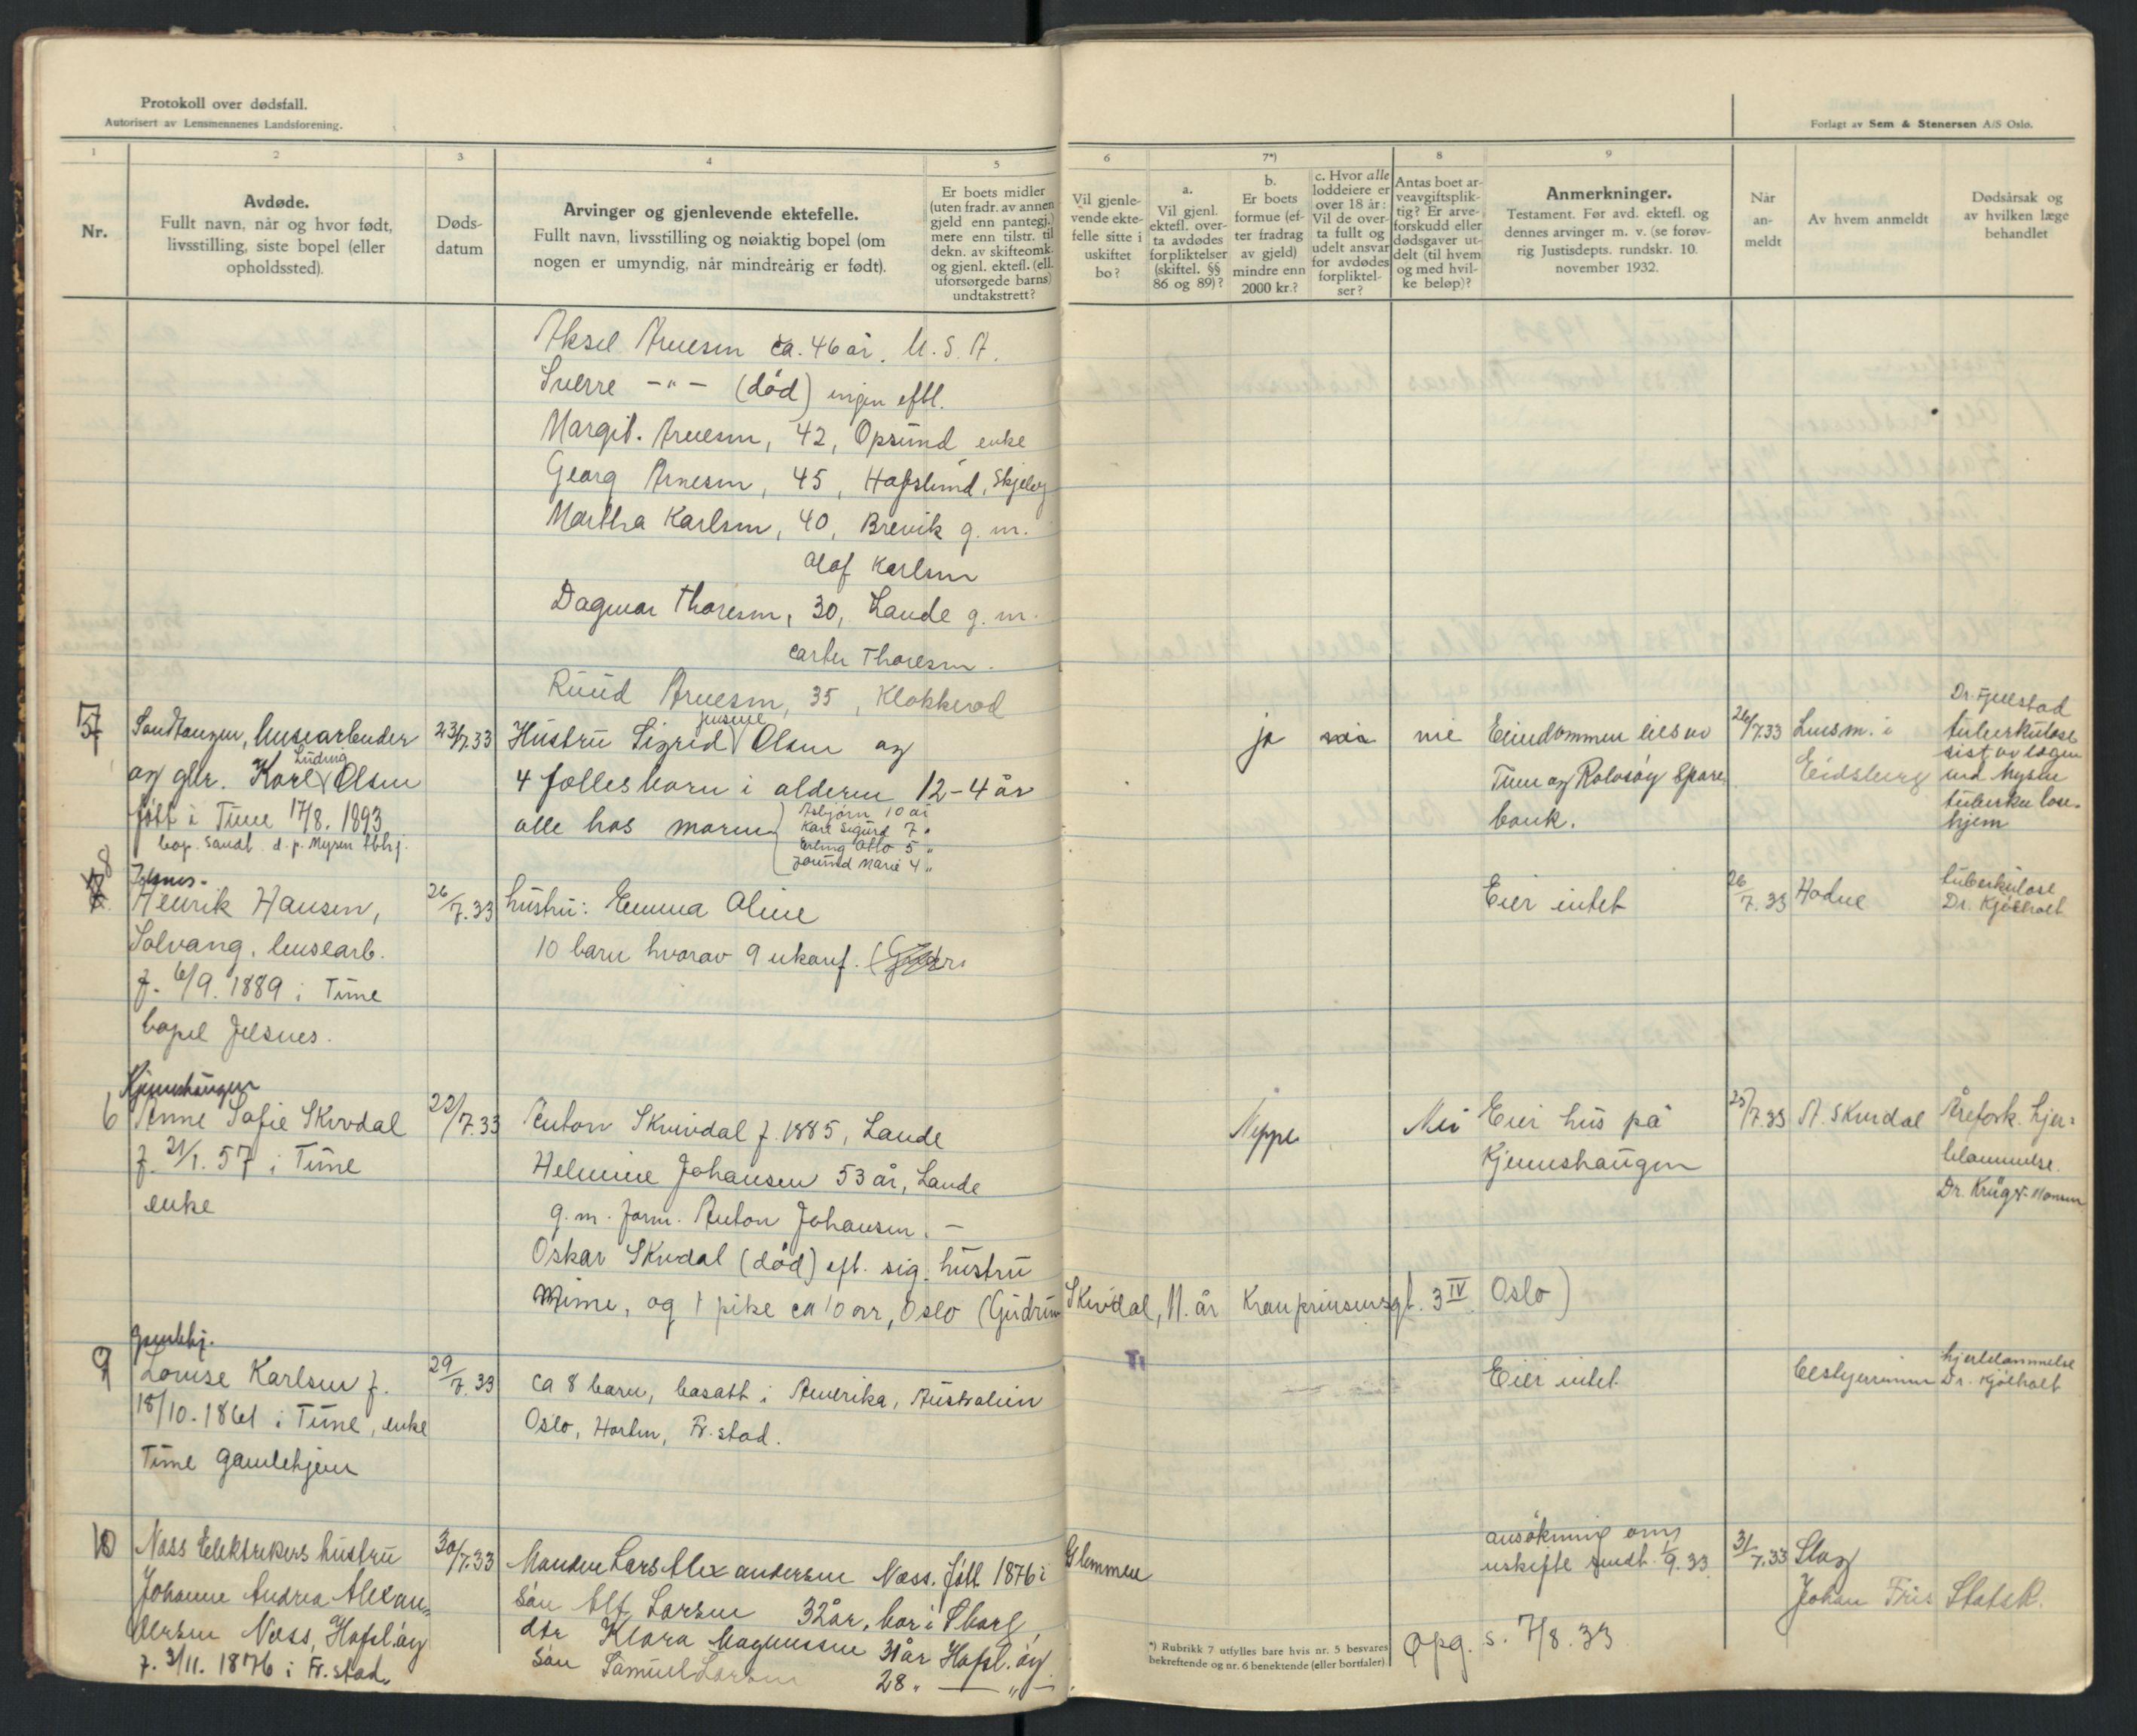 Protokoll over dødsfall.
Autorisert av Lensmennenes Landsforening.
Forlagt av Sem & Stenersen A/S Oslo.
1
2
3
4
5
6
7*)
8
9
Nr.
Avdøde.
Fullt navn, når og hvor født,
livsstilling, siste bopel (eller
opholdssted).
Døds-
datum
Arvinger og gjenlevende ektefelle.
Fullt navn, livsstilling og nøiaktig bopel (om
nogen er umyndig, når mindreårig er født).
Er boets midler
(uten fradr. av annen
gjeld enn pantegj.)
mere enn tilstr. til
dekn. av skifteomk.
og gjenl. ektefl. (ell.
uforsørgede barns)
undtakstrett?
Vil gjenle-
vende ekte-
felle sitte i
uskiftet
bo?
a.
Vil gjenl.
ektefl. over-
ta avdødes
forpliktelser
(skiftel. §§
86 og 89)?
b.
Er boets
formue (ef-
ter fradrag
av gjeld)
mindre enn
2000 kr.?
c. Hvor alle
loddeiere er
over 18 år:
Vil de over-
ta fullt og
udelt ansvar
for avdødes
forpliktel-
ser?
Antas boet ar-
veavgiftsplik-
tig? Er arve-
forskudd eller
dødsgaver ut-
delt (til hvem
og med hvil-
ke beløp)?
Anmerkninger.
Testament. Før avd. ektefl. og
dennes arvinger m. v. (se forøv-
rig Justisdepts. rundskr. 10.
november 1932.
Når
an-
meldt
Av hvem anmeldt
Dødsårsak og
av hvilken læge
behandlet
Aksel Arnesen ca. 46 år. U. S. A.
Sverre -"- (død) ingen eftl.
Margit. Arnesen, 42, Opsund enke
Georg Arnesen, 45, Hafslund, Skjeberg
Martha Karlsen, 40, Brevik g. m.
Olaf Karlsen
Dagmar Thoresen, 30, Lande g. m.
Thoresen.
Ruud Arnesen, 35, Klokkerød
57
Sandtangen, Murarbeider
og gbr. Karl Ludvig Olsen
født i Tune 17/8. 1893
bop. Sandt. d. p. Mysen tbhj.
23/7.33
Hustru Sigrid Olsen og
4 felles barn i alderen 12-4 år
alle hos moren
Asbjørn 10 år
Karl Sigurd 7 "
Erling Otto 5 "
Marie 4 "
ja
nei
Eiendommen eies av
Tune og Rolvsøy Spare-
bank.
26/7.33
Lensm. i
Eidsberg
Dr. Fjeldstad
tuberkulose
sist av lægen
ved Mysen
tuberkulose-
hjem
8
Jelsnes.
Henrik Hansen,
Solvang, murarb.
f. 6/9. 1889 i Tune
bopel Jelsnes.
26/7.33
hustru: Emma Oline
10 barn hvorav 9 ukonf.
Eier intet
26/7.33
Hodne
tuberkulose
Dr. Kjølholt
Kjennshaugen
6
Anne Sofie Skivdal
f. 21/1. 57 i Tune
enke
22/7.33
Anton Skivdal f. 1885, Lande
Helmine Johansen 53 år, Lande
g. m. form. Anton Johansen. -
Oskar Skivdal (død) eft. sig. hustru
Mime, og 1 pike ca 10 år, Oslo (Gudrun Skivdal, 11. år Kronprinsensgt. 3 IV Oslo)
Neppe
Nei
Eier hus på
Kjennshaugen
25/7.33
A. Skivdal
Årefork. hjer-
telammelse.
Dr. Krüger-Monsen
gamlehj.
9
Lovise Karlsen f.
18/10. 1861 i Tune, enke
Tune gamlehjem
29/7.33
ca 8 barn, bosatt i Amerika, Australien
Oslo, Horten, Fr.stad.
Eier intet
Bestyrerinnen
hjertelammelse
Dr. Kjølholt
10
Næss Elektrikers hustru
Johanne Andrea Alexan-
dersen Næss, Hafsl.øy
f. 3/11. 1876 i Fr.stad.
30/7.33
Manden Lars Alexandersen Næss. født 1876 i Glemmen
Søn Alf Larsen 32 år, bor i Sbarg,
dtr Klara Magnussen 31 år Hafsl.øy.
Søn Samuel Larsen 28 " — " —
ansøkning om
uskifte sendt. 1/9. 33.
31/7.33
Slag
Johan Friis Stabek.
*) Rubrikk 7 utfylles bare hvis nr. 5 besvares
bekreftende og nr. 6 benektende (eller bortfaler)
Opg. s. 7/8. 33